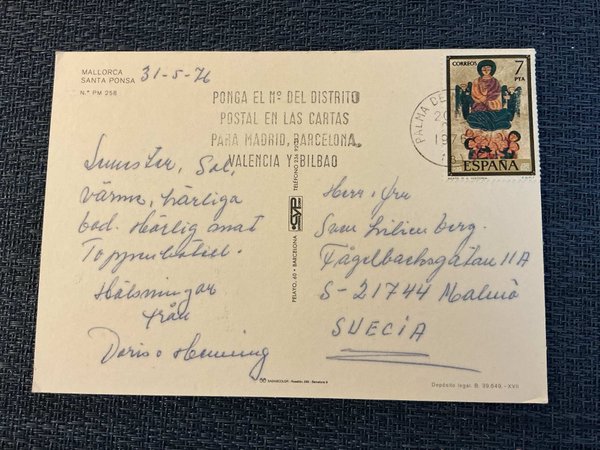 MALLORCA
SANTA PONSA
N.º PM 258
31-5-76
PONGA EL Nº DEL DISTRITO
POSTAL EN LAS CARTAS
PARA MADRID, BARCELONA,
VALENCIA Y BILBAO
CORREOS 7
PTA
ESPAÑA
PALMA DE
Sol,
värme, härliga
bad. Härlig mat
Toppenhotell.
Hälsningar
från
Doris o Henning
PELAYO, 60 • BARCELONA
TELÉFONO
Herr, fru
Sven Liljenberg.
Fågelbacksgatan 11A
S-21744 Malmö
SUECIA
Depósito legal. B. 39.649 - XVII